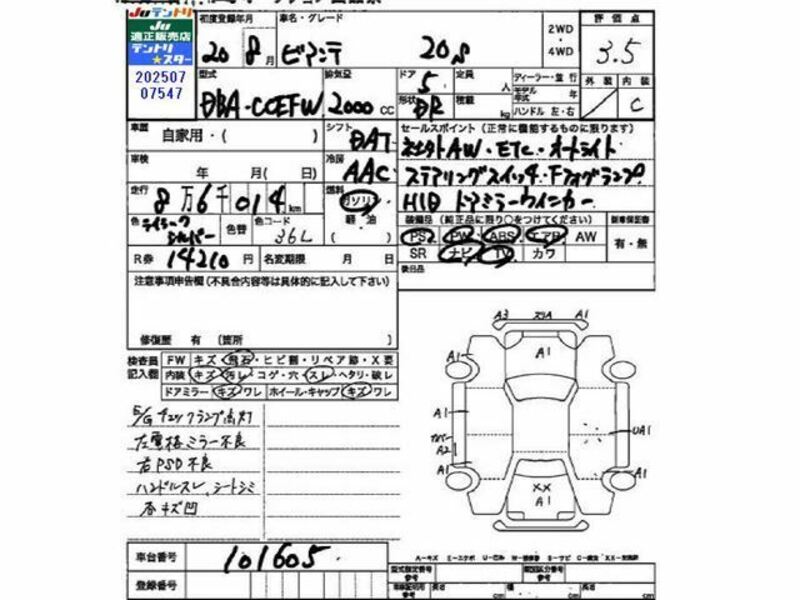 JUテントリ
JU
適正販売店
テントリ
★スター
202507
07547
初度登録年月
車名・グレード
評価点
20 8月 ビアンテ 20S
2WD
4WD
3.5
型式
排気量
ドア
定員
ディーラー・並行
外装 内装
DBA-CCEFW 2000 CC
5 人
モデル年式 年
形状 DR 積載 kg
ハンドル 左・右
C
車歴 自家用・( )
シフト DAT
セールスポイント (正常に機能するものに限ります)
社外AW・ETC・オートライト
車検 年 月( 日)
冷房 AAC
ステアリングスイッチ・Fフォグランプ
走行 8万6千014km
燃料 ガソリン
軽・油
( )
HID ドアミラーウインカー
色 ライトーク シルバー
色替
色コード 36L
装備品 (純正品に限り○をつけてください)
新車保証書
PS PW ABS エアB AW
有・無
SR ナビ TV カワ
R券 14210円
名変期限 月 日
後日品
注意事項申告欄(不具合内容等は具体的に記入して下さい)
修復歴 有 (箇所 )
検査員
記入欄
FW キズ・飛石・ヒビ割・リペア跡・X要
内装 キズ・汚レ・コゲ・穴・スレ・ヘタリ・破レ
ドアミラー キズ・ワレ ホイール・キャップ キズ・ワレ
E/Gチェックランプ点灯
左電格ミラー不良
右PSD不良
ハンドルスレ、シートシミ
各キズ凹
A3 スリA A1
A1
A1
A1
A1
カバー
A2
UA1
A1
A1
XX
A1
A-キズ E-エクボ U-凹み W-補修跡 S-サビ C-腐食 XX-交換済
車台番号 101605
登録番号
型式指定番号
参考
類別区分番号
参考
車検証明用
参考
長さ cm 幅 cm 高さ cm